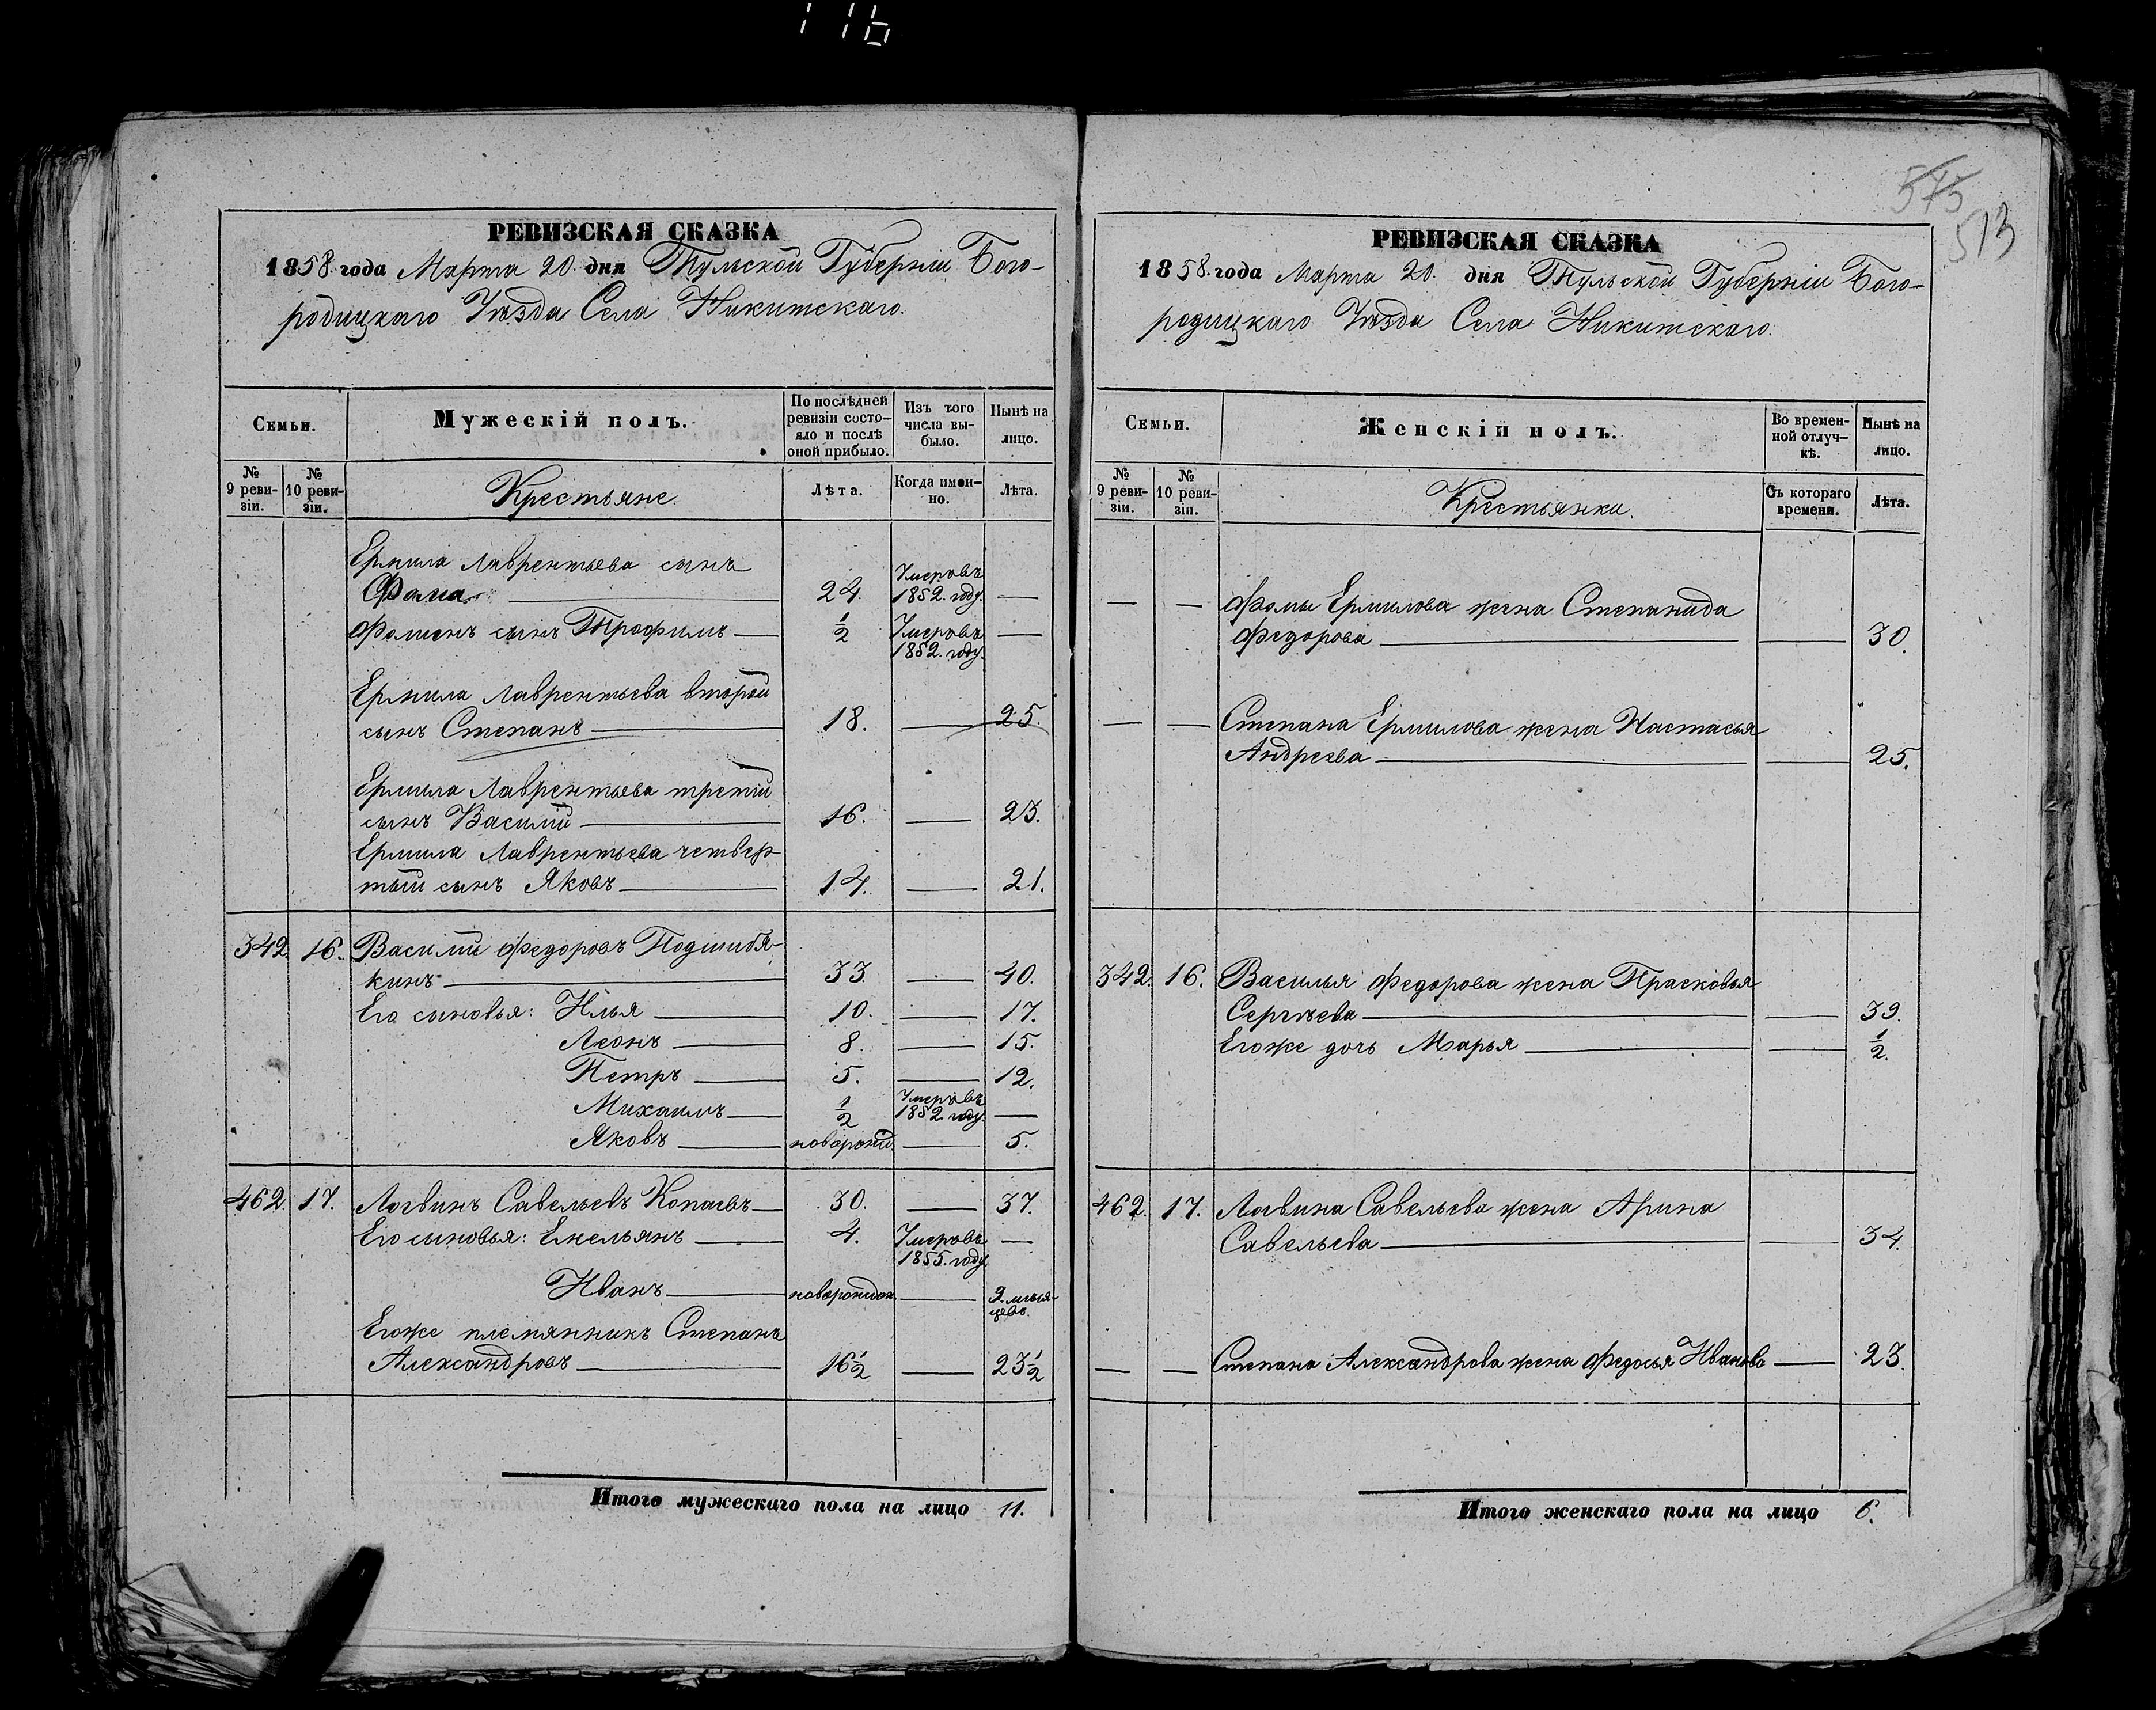 116
РЕВИЗСКАЯ СКАЗКА
1858. года Марта 20. дня Тульской Губерніи Бого-
родицкаго Уѣзда Села Никитскаго.
Семьи.
Мужескій полъ.
По послѣдней
ревизіи состо-
яло и послѣ
оной прибыло.
Изъ того
числа вы-
было.
Нынѣ на
лицо.
№
9 реви-
зіи.
№
10 реви-
зіи.
Крестьяне.
Лѣта.
Когда имен-
но.
Лѣта.
Ермила Лаврентьева сынъ
Фома 24. Умеръ въ 1852. году. —
Фоминъ сынъ Трофимъ — ½ Умеръ въ 1852. году. —
Ермила Лаврентьева второй
сынъ Степанъ — 18. — 25.
Ермила Лаврентьева третій
сынъ Василій — 16. — 23.
Ермила Лаврентьева четвер-
тый сынъ Яковъ — 14. — 21.
342. 16. Василій Федоровъ Подшибя-
кинъ — 33. — 40.
Его сыновья: Илья — 10. — 17.
Леонъ — 8. — 15.
Петръ — 5. — 12.
Михаилъ — ½ Умеръ въ 1852 году. —
Яковъ — новорожд. — 5.
462. 17. Логвинъ Савельевъ Копаевъ — 30. — 37.
Его сыновья: Емельянъ — 4. Умеръ въ 1855. году —
Иванъ — новорожден. — 9. мѣся-
цевъ.
Егоже племянникъ Степанъ
Александровъ — 16½ — 23½
Итого мужескаго пола на лицо 11.
575
513
РЕВИЗСКАЯ СКАЗКА
1858. года Марта 20. дня Тульской Губерніи Бого-
родицкаго Уѣзда Села Никитскаго.
Семьи.
Женскій полъ.
Во времен-
ной отлуч-
кѣ.
Нынѣ на
лицо.
№
9 реви-
зіи.
№
10 реви-
зіи.
Крестьянки.
Съ котораго
времени.
Лѣта.
— — Фомы Ермилова жена Степанида
Федорова — — 30.
— — Степана Ермилова жена Настасья
Андреева — — 25.
342. 16. Василья Федорова жена Прасковья
Сергѣева — — 39.
Егоже дочь Марья — — ½.
462. 17. Логвина Савельева жена Арина
Савельева — — 34.
— — Степана Александрова жена Федосья Иванова — 23.
Итого женскаго пола на лицо 6.